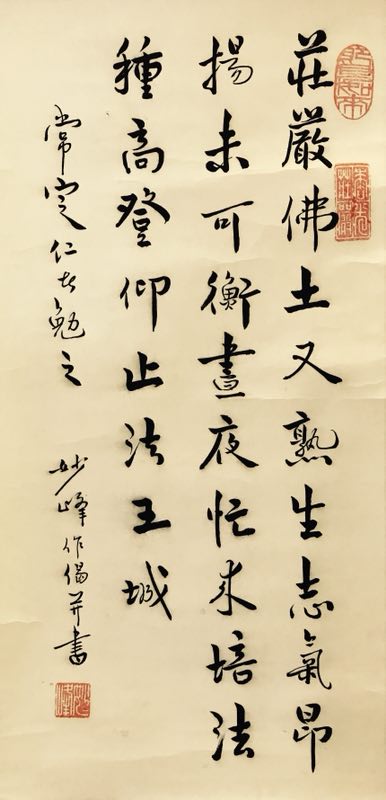 莊嚴佛土又熟生志氣昂
揚未可衡晝夜忙來培法
種高登仰止法王城
常定仁者勉之
妙峰作偈并書